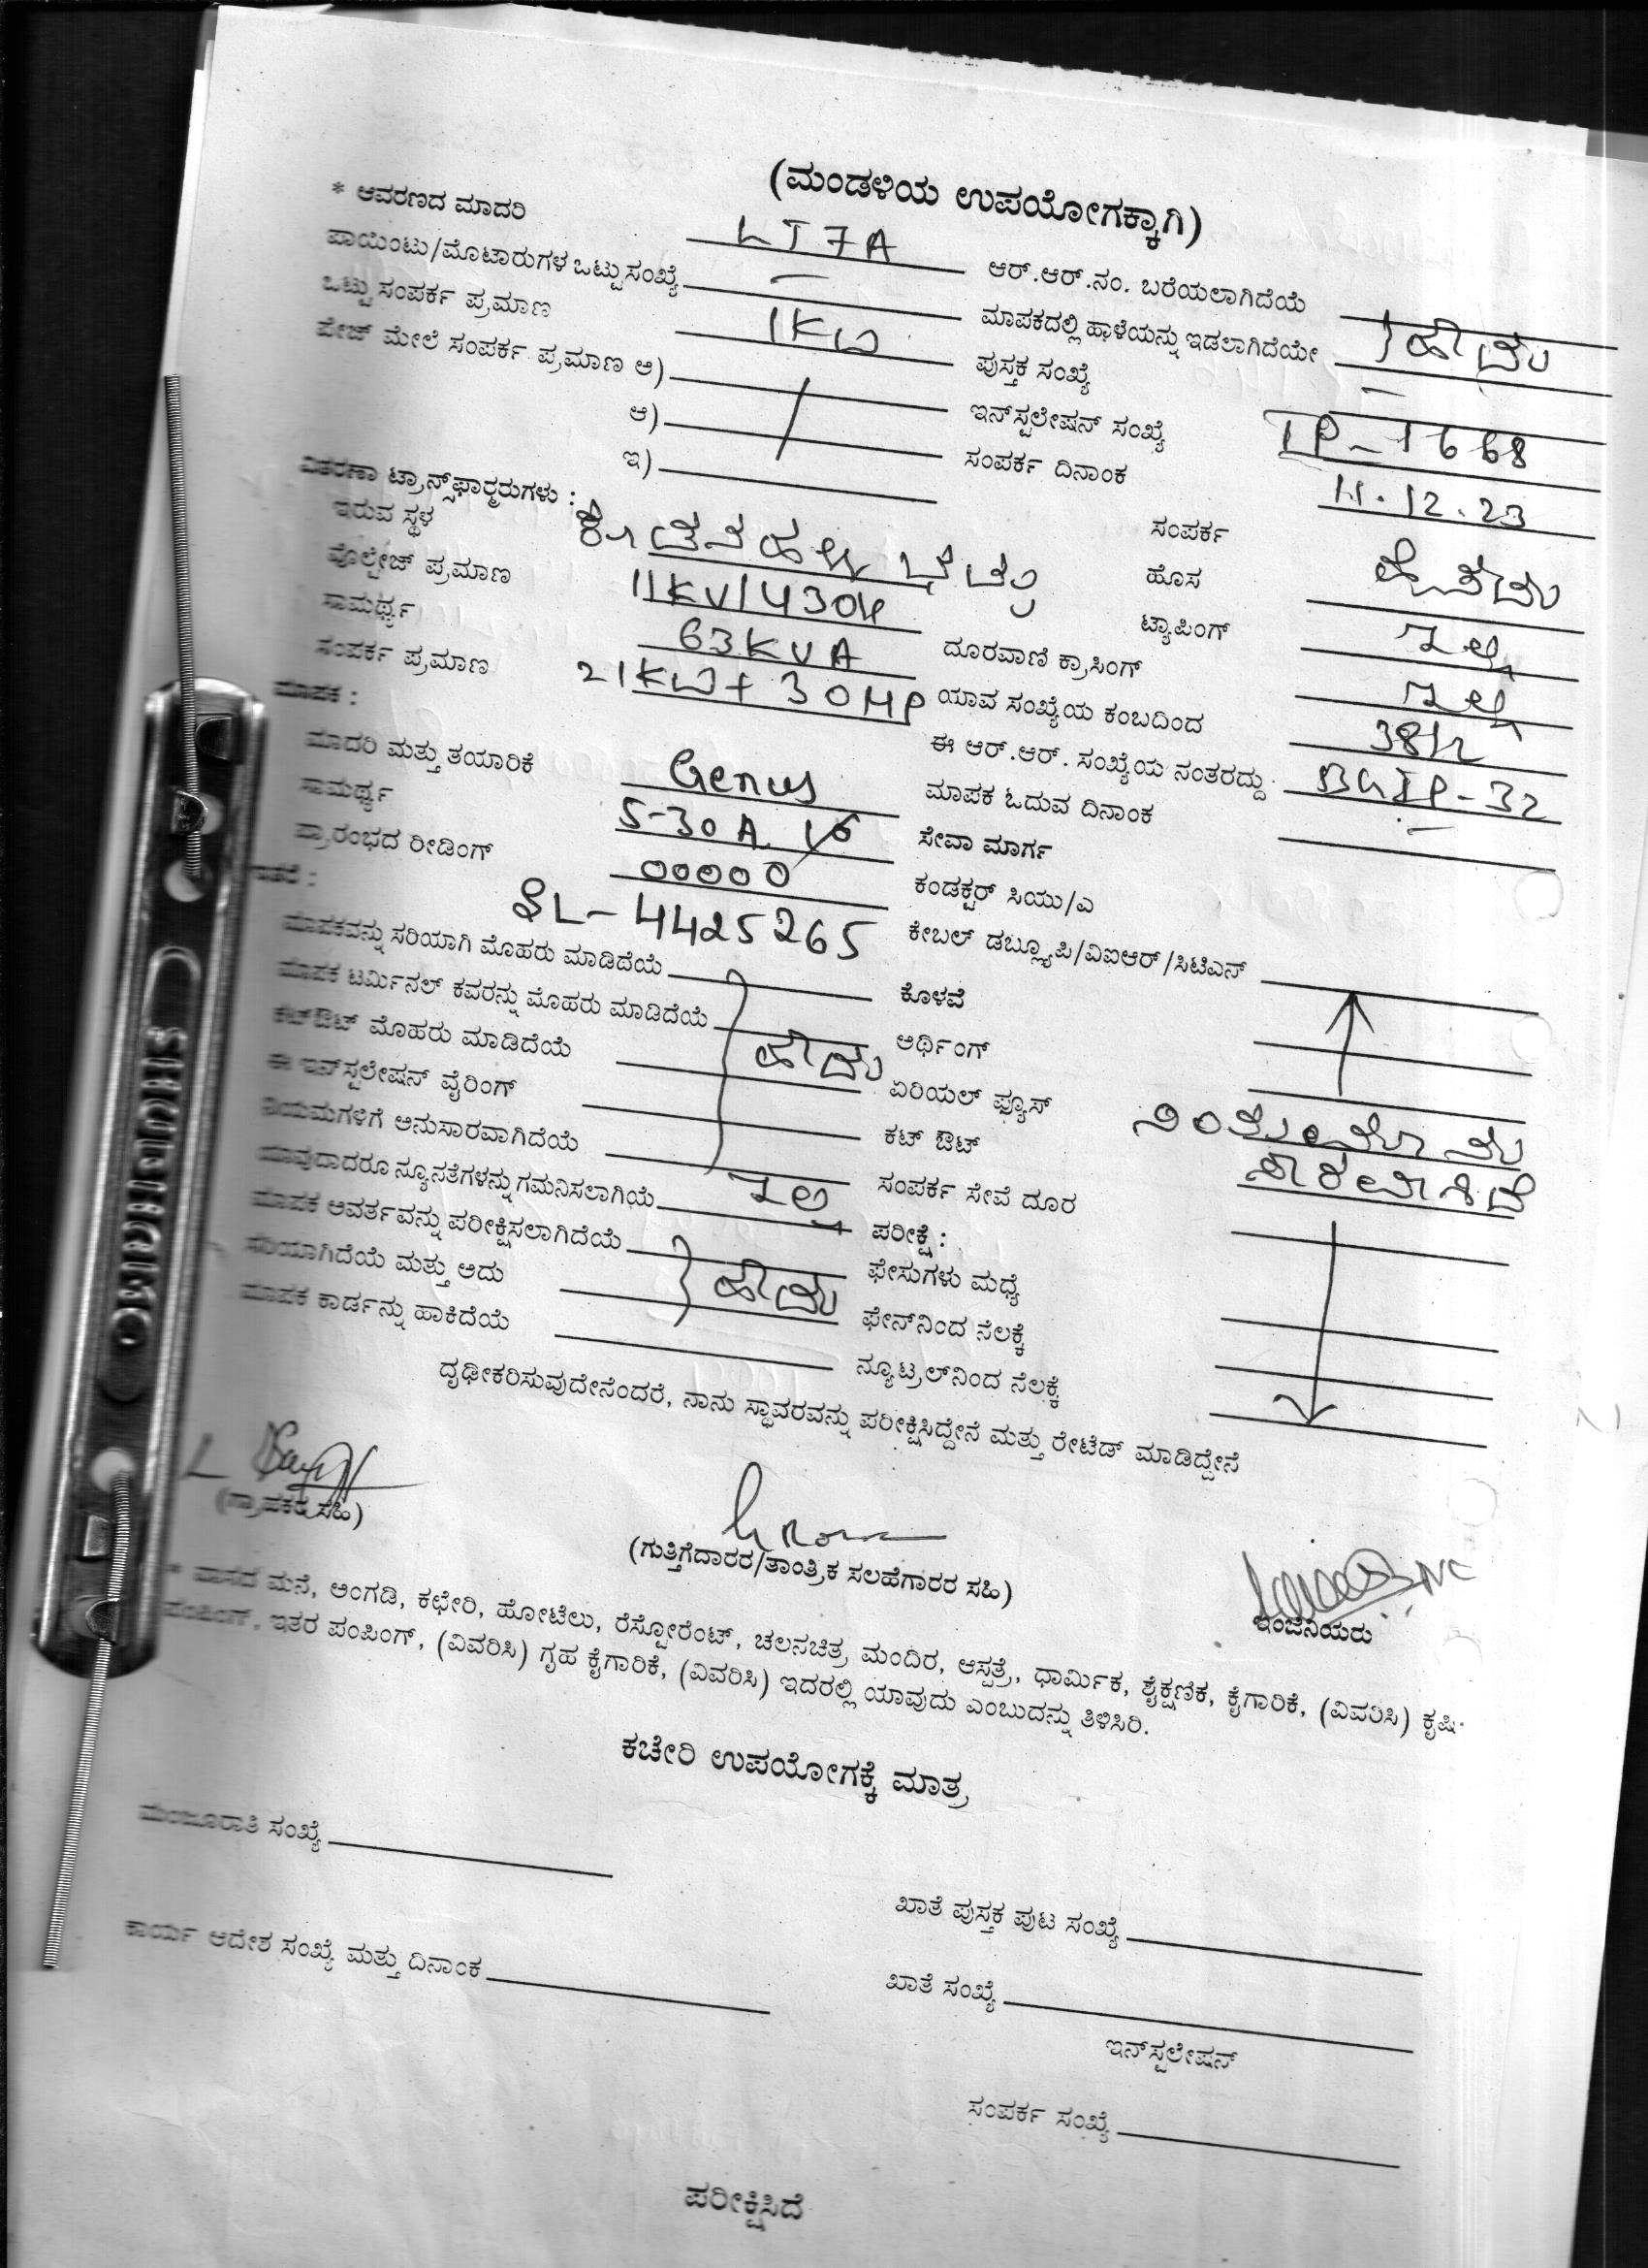 (ಮಂಡಳಿಯ ಉಪಯೋಗಕ್ಕಾಗಿ)
* ಆವರಣದ ಮಾದರಿ LT 7A ಆರ್.ಆರ್.ನಂ. ಬರೆಯಲಾಗಿದೆಯೆ
ಪಾಯಿಂಟು/ಮೊಟಾರುಗಳ ಒಟ್ಟು ಸಂಖ್ಯೆ — ಮಾಪಕದಲ್ಲಿ ಹಾಳೆಯನ್ನು ಇಡಲಾಗಿದೆಯೇ } ಹೌದು
ಒಟ್ಟು ಸಂಪರ್ಕ ಪ್ರಮಾಣ 1KW ಪುಸ್ತಕ ಸಂಖ್ಯೆ —
ಪೇಜ್ ಮೇಲೆ ಸಂಪರ್ಕ ಪ್ರಮಾಣ ಅ) ಇನ್‌ಸ್ಟಲೇಷನ್ ಸಂಖ್ಯೆ TP-1668
ಆ) ಸಂಪರ್ಕ ದಿನಾಂಕ 11.12.23
ಇ)
ವಿತರಣಾ ಟ್ರಾನ್ಸ್‌ಫಾರ್ಮರುಗಳು : ಸಂಪರ್ಕ
ಇರುವ ಸ್ಥಳ ಹೊಸ
ವೊಲ್ಟೇಜ್ ಪ್ರಮಾಣ 11KV/430V ಟ್ಯಾಪಿಂಗ್ ಇಲ್ಲ
ಸಾಮರ್ಥ್ಯ 63KVA ದೂರವಾಣಿ ಕ್ರಾಸಿಂಗ್ ಇಲ್ಲ
ಸಂಪರ್ಕ ಪ್ರಮಾಣ 21KW+30HP ಯಾವ ಸಂಖ್ಯೆಯ ಕಂಬದಿಂದ
ಮಾಪಕ : ಈ ಆರ್.ಆರ್. ಸಂಖ್ಯೆಯ ನಂತರದ್ದು BGTP-32
ಮಾದರಿ ಮತ್ತು ತಯಾರಿಕೆ Genus ಮಾಪಕ ಓದುವ ದಿನಾಂಕ —
ಸಾಮರ್ಥ್ಯ 5-30A 1ø ಸೇವಾ ಮಾರ್ಗ
ಪ್ರಾರಂಭದ ರೀಡಿಂಗ್ 00000 ಕಂಡಕ್ಟರ್ ಸಿಯು/ಎ
SL-4425265 ಕೇಬಲ್ ಡಬ್ಲ್ಯೂಪಿ/ವಿಐಆರ್/ಸಿಟಿಎಸ್
ಮಾಪಕವನ್ನು ಸರಿಯಾಗಿ ಮೊಹರು ಮಾಡಿದೆಯೆ ಕೊಳವೆ
ಮಾಪಕ ಟರ್ಮಿನಲ್ ಕವರನ್ನು ಮೊಹರು ಮಾಡಿದೆಯೆ ಅರ್ಥಿಂಗ್
ಕಟ್‌ಔಟ್ ಮೊಹರು ಮಾಡಿದೆಯೆ ಹೌದು ಏರಿಯಲ್ ಫ್ಯೂಸ್
ಈ ಇನ್‌ಸ್ಟಲೇಷನ್ ವೈರಿಂಗ್ ಕಟ್ ಔಟ್
ನಿಯಮಗಳಿಗೆ ಅನುಸಾರವಾಗಿದೆಯೆ ಸಂಪರ್ಕ ಸೇವೆ ದೂರ
ಯಾವುದಾದರೂ ನ್ಯೂನತೆಗಳನ್ನು ಗಮನಿಸಲಾಗಿಯೆ ಇಲ್ಲ ಪರೀಕ್ಷೆ :
ಮಾಪಕ ಆವರ್ತವನ್ನು ಪರೀಕ್ಷಿಸಲಾಗಿದೆಯೆ ಫೇಸುಗಳು ಮಧ್ಯೆ
ಸರಿಯಾಗಿದೆಯೆ ಮತ್ತು ಅದು } ಹೌದು ಫೇಸ್‌ನಿಂದ ನೆಲಕ್ಕೆ
ಮಾಪಕ ಕಾರ್ಡನ್ನು ಹಾಕಿದೆಯೆ ನ್ಯೂಟ್ರಲ್‌ನಿಂದ ನೆಲಕ್ಕೆ
ದೃಢೀಕರಿಸುವುದೇನೆಂದರೆ, ನಾನು ಸ್ಥಾವರವನ್ನು ಪರೀಕ್ಷಿಸಿದ್ದೇನೆ ಮತ್ತು ರೇಟೆಡ್ ಮಾಡಿದ್ದೇನೆ
(ಗ್ರಾಪಕರ ಸಹಿ)
(ಗುತ್ತಿಗೆದಾರರ/ತಾಂತ್ರಿಕ ಸಲಹೆಗಾರರ ಸಹಿ)
ಇಂಜಿನಿಯರು
* ವಾಸದ ಮನೆ, ಅಂಗಡಿ, ಕಛೇರಿ, ಹೋಟೆಲು, ರೆಸ್ಟೋರೆಂಟ್, ಚಲನಚಿತ್ರ ಮಂದಿರ, ಆಸ್ಪತ್ರೆ, ಧಾರ್ಮಿಕ, ಶೈಕ್ಷಣಿಕ, ಕೈಗಾರಿಕೆ, (ವಿವರಿಸಿ) ಕೃಷಿ
ಪಂಪಿಂಗ್, ಇತರ ಪಂಪಿಂಗ್, (ವಿವರಿಸಿ) ಗೃಹ ಕೈಗಾರಿಕೆ, (ವಿವರಿಸಿ) ಇದರಲ್ಲಿ ಯಾವುದು ಎಂಬುದನ್ನು ತಿಳಿಸಿರಿ.
ಕಚೇರಿ ಉಪಯೋಗಕ್ಕೆ ಮಾತ್ರ
ಮಂಜೂರಾತಿ ಸಂಖ್ಯೆ
ಖಾತೆ ಪುಸ್ತಕ ಪುಟ ಸಂಖ್ಯೆ
ಕಾರ್ಯ ಆದೇಶ ಸಂಖ್ಯೆ ಮತ್ತು ದಿನಾಂಕ
ಖಾತೆ ಸಂಖ್ಯೆ
ಇನ್‌ಸ್ಟಲೇಷನ್
ಸಂಪರ್ಕ ಸಂಖ್ಯೆ
ಪರೀಕ್ಷಿಸಿದೆ